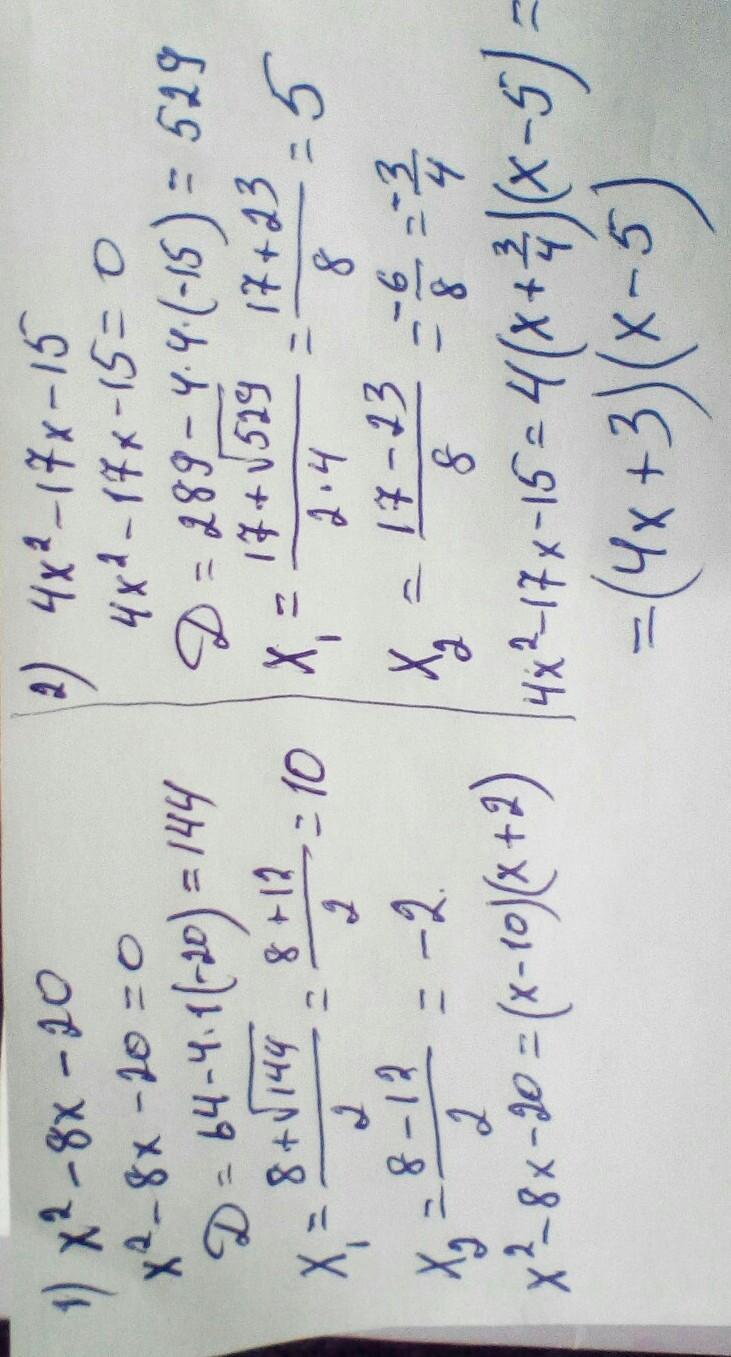 1) x² - 8x - 20
x² - 8x - 20 = 0
D = 64 - 4·1(-20) = 144
x₁ = (8 + √144)/2 = (8 + 12)/2 = 10
x₂ = (8 - 12)/2 = -2.
x² - 8x - 20 = (x - 10)(x + 2)
2) 4x² - 17x - 15
4x² - 17x - 15 = 0
D = 289 - 4·4·(-15) = 529
x₁ = (17 + √529)/(2·4) = (17 + 23)/8 = 5
x₂ = (17 - 23)/8 = -6/8 = -3/4
4x² - 17x - 15 = 4(x + 3/4)(x - 5) =
= (4x + 3)(x - 5)